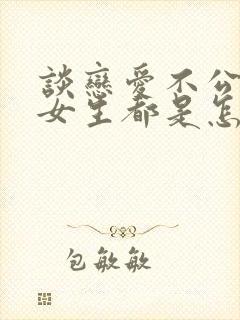 談戀愛不公
女生都是怎
包敏敏